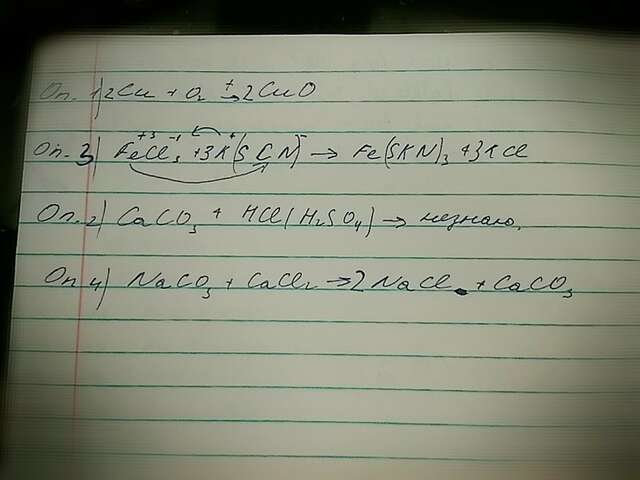 Оп. 1) 2Cu + O₂ →ᵗ 2CuO
Оп. 3) Fe⁺³Cl₃⁻¹ + 3K⁺(SCN)⁻ → Fe(SKN)₃ + 3KCl
Оп. 2) CaCO₃ + HCl(H₂SO₄) → незнаю.
Оп 4) NaCO₃ + CaCl₂ → 2NaCl + CaCO₃